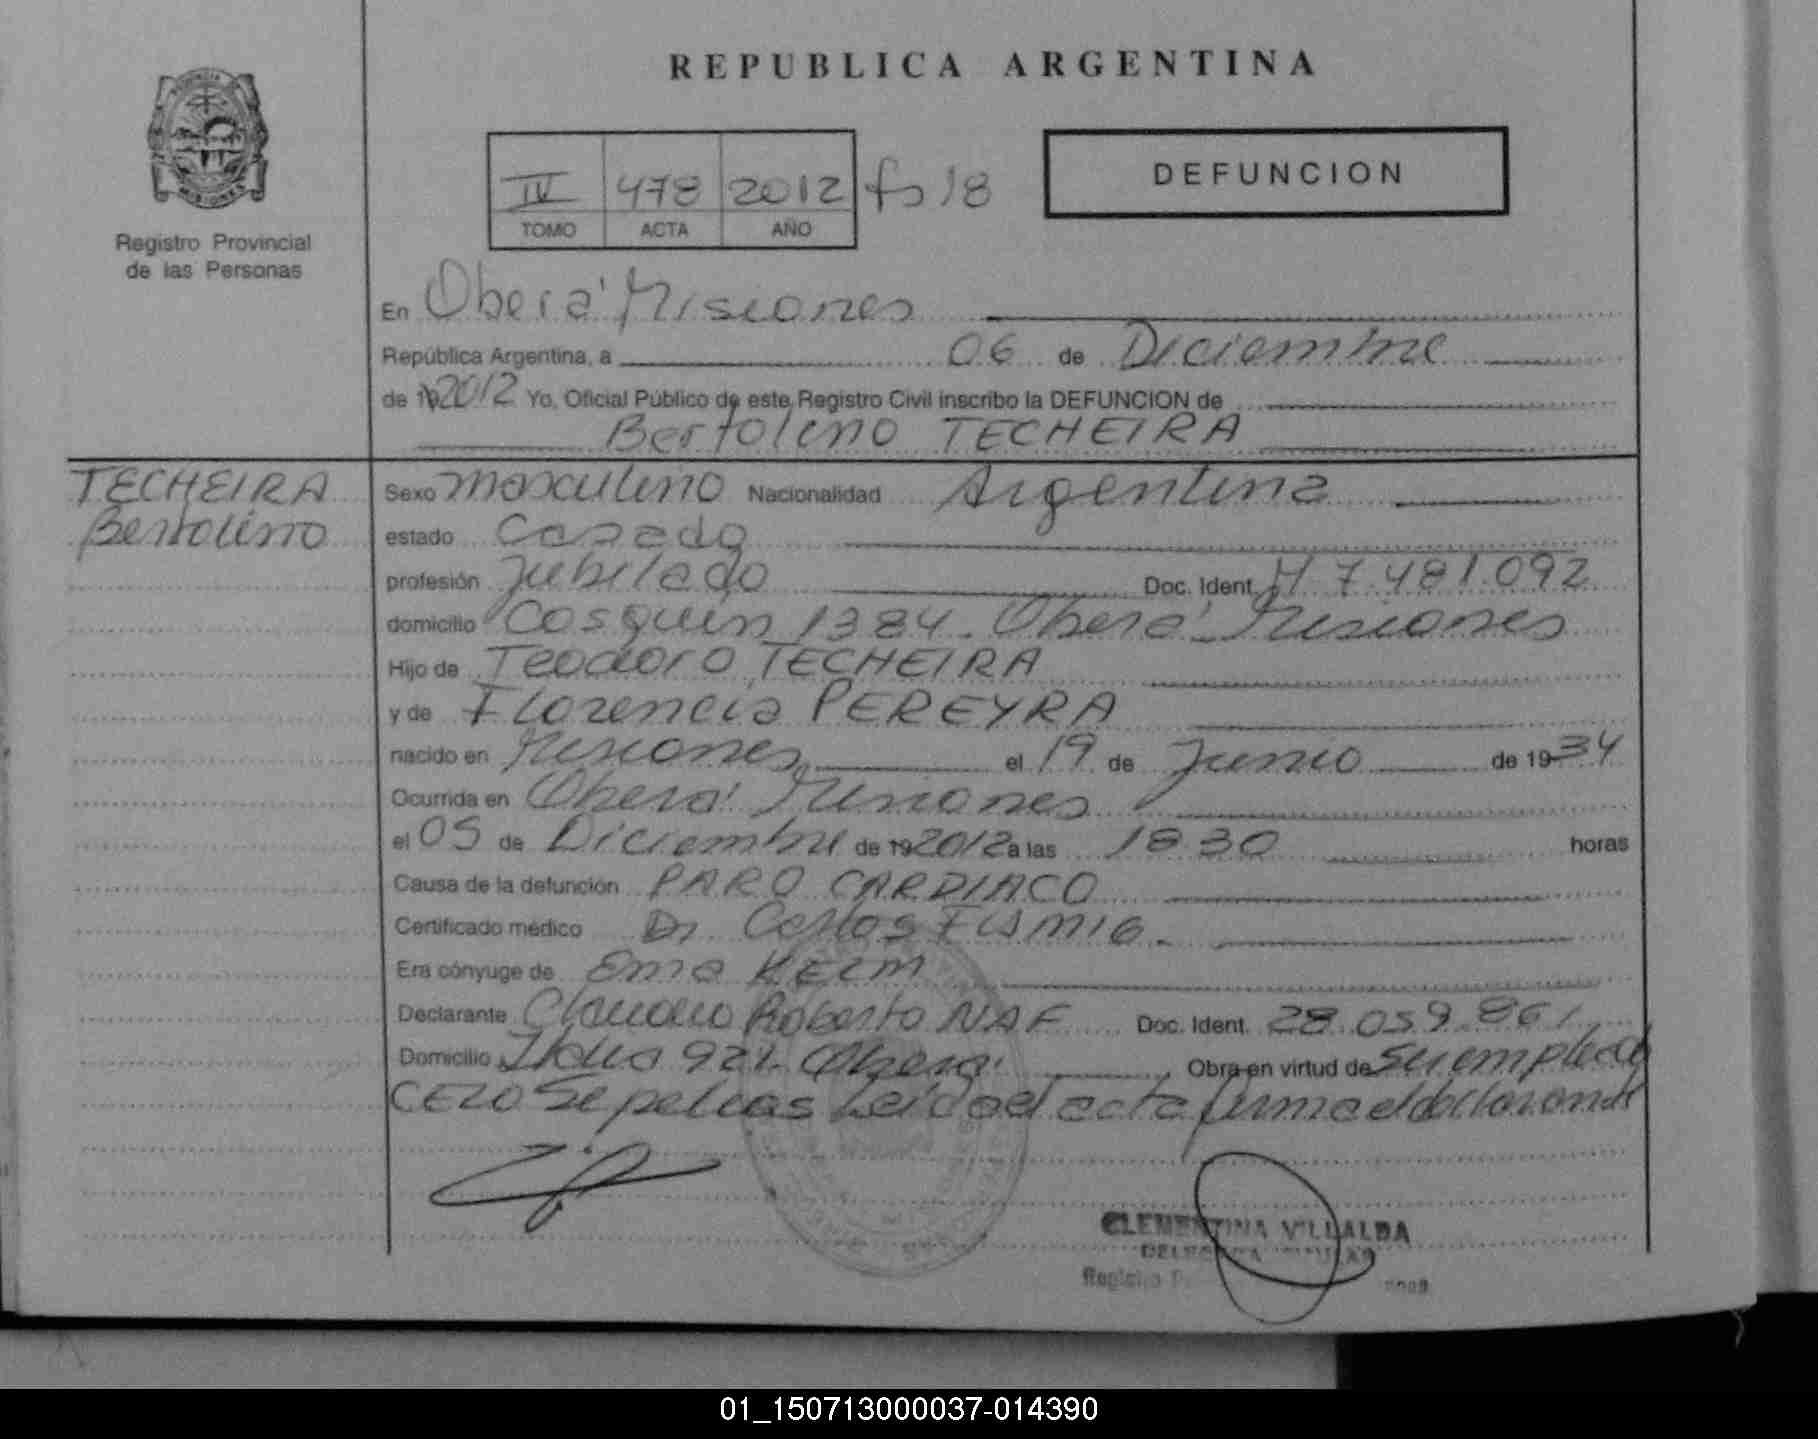 REPUBLICA ARGENTINA
PROVINCIA
MISIONES
Registro Provincial
de las Personas
IV 478 2012 fs 18
TOMO ACTA AÑO
DEFUNCION
En Oberá Misiones
República Argentina, a 06 de Diciembre
de 192012 Yo, Oficial Público de este Registro Civil inscribo la DEFUNCION de
Bertolino TECHEIRA
TECHEIRA
Bertolino
Sexo masculino Nacionalidad Argentina
estado Casado
profesión Jubilado Doc. Ident. M 7.481.092
domicilio Cosquin 1384. Oberá Misiones
Hijo de Teodoro TECHEIRA
y de Florencia PEREYRA
nacido en Misiones el 19 de Junio de 1934
Ocurrida en Oberá Misiones
el 05 de Diciembre de 192012 a las 18 30 horas
Causa de la defunción PARO CARDIACO
Certificado médico Dr Carlos
Era cónyuge de Ema KEIM
Declarante Claudio Roberto NAF Doc. Ident. 28.059.861
Domicilio 921. Oberá Obra en virtud de Su empleado
CELO Sepelios Leida el acta firma el declarante
CLEMENTINA VILLALBA
DELEGADA TITULAR
Registro
01_150713000037-014390